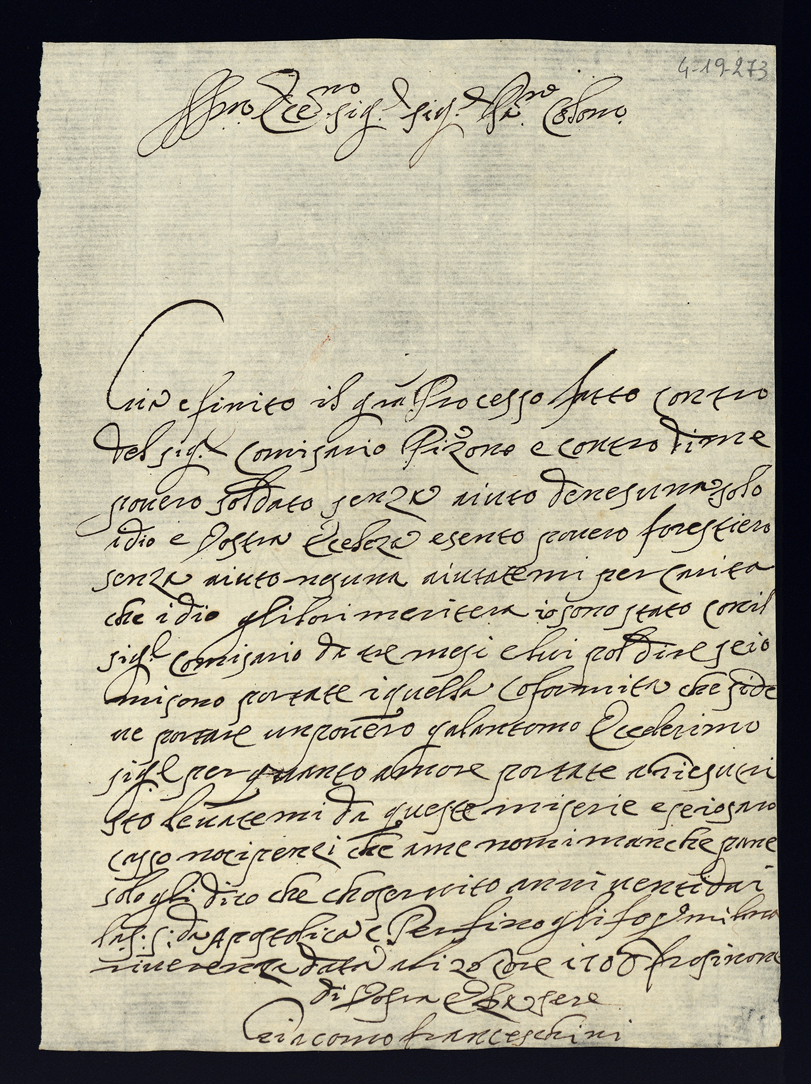 4-19-273
Illmo Ecce.mo sig.e sig.e Colono
finito il gra Processo fatto contro
del sig.e Comisario Pizono e contro di me
povero soldato senza aiuto de nesuna solo
idio e Vostra Eceleza esento povero forestiero
senza aiuto nesuna aiutatemi per carita
che idio gli lo rimeritera io sono stato con il
sig.e Comisario da tre mesi e lui pol dire se io
mi sono portate i quella Coformita che si de
ve portare un povero galantomo Ecelerimo
sig.e per quanto amore portate a Giesu cri
sto levatemi da queste miserie e se io savo
caso no ci pensi che a me no mi manche pane
solo gli dico che cho servito anni venti dui
la s: s: da Apostolica e Per fino gli fo
riverenza data a li 20 Frosinone
di Vostra
Giacomo franceschini